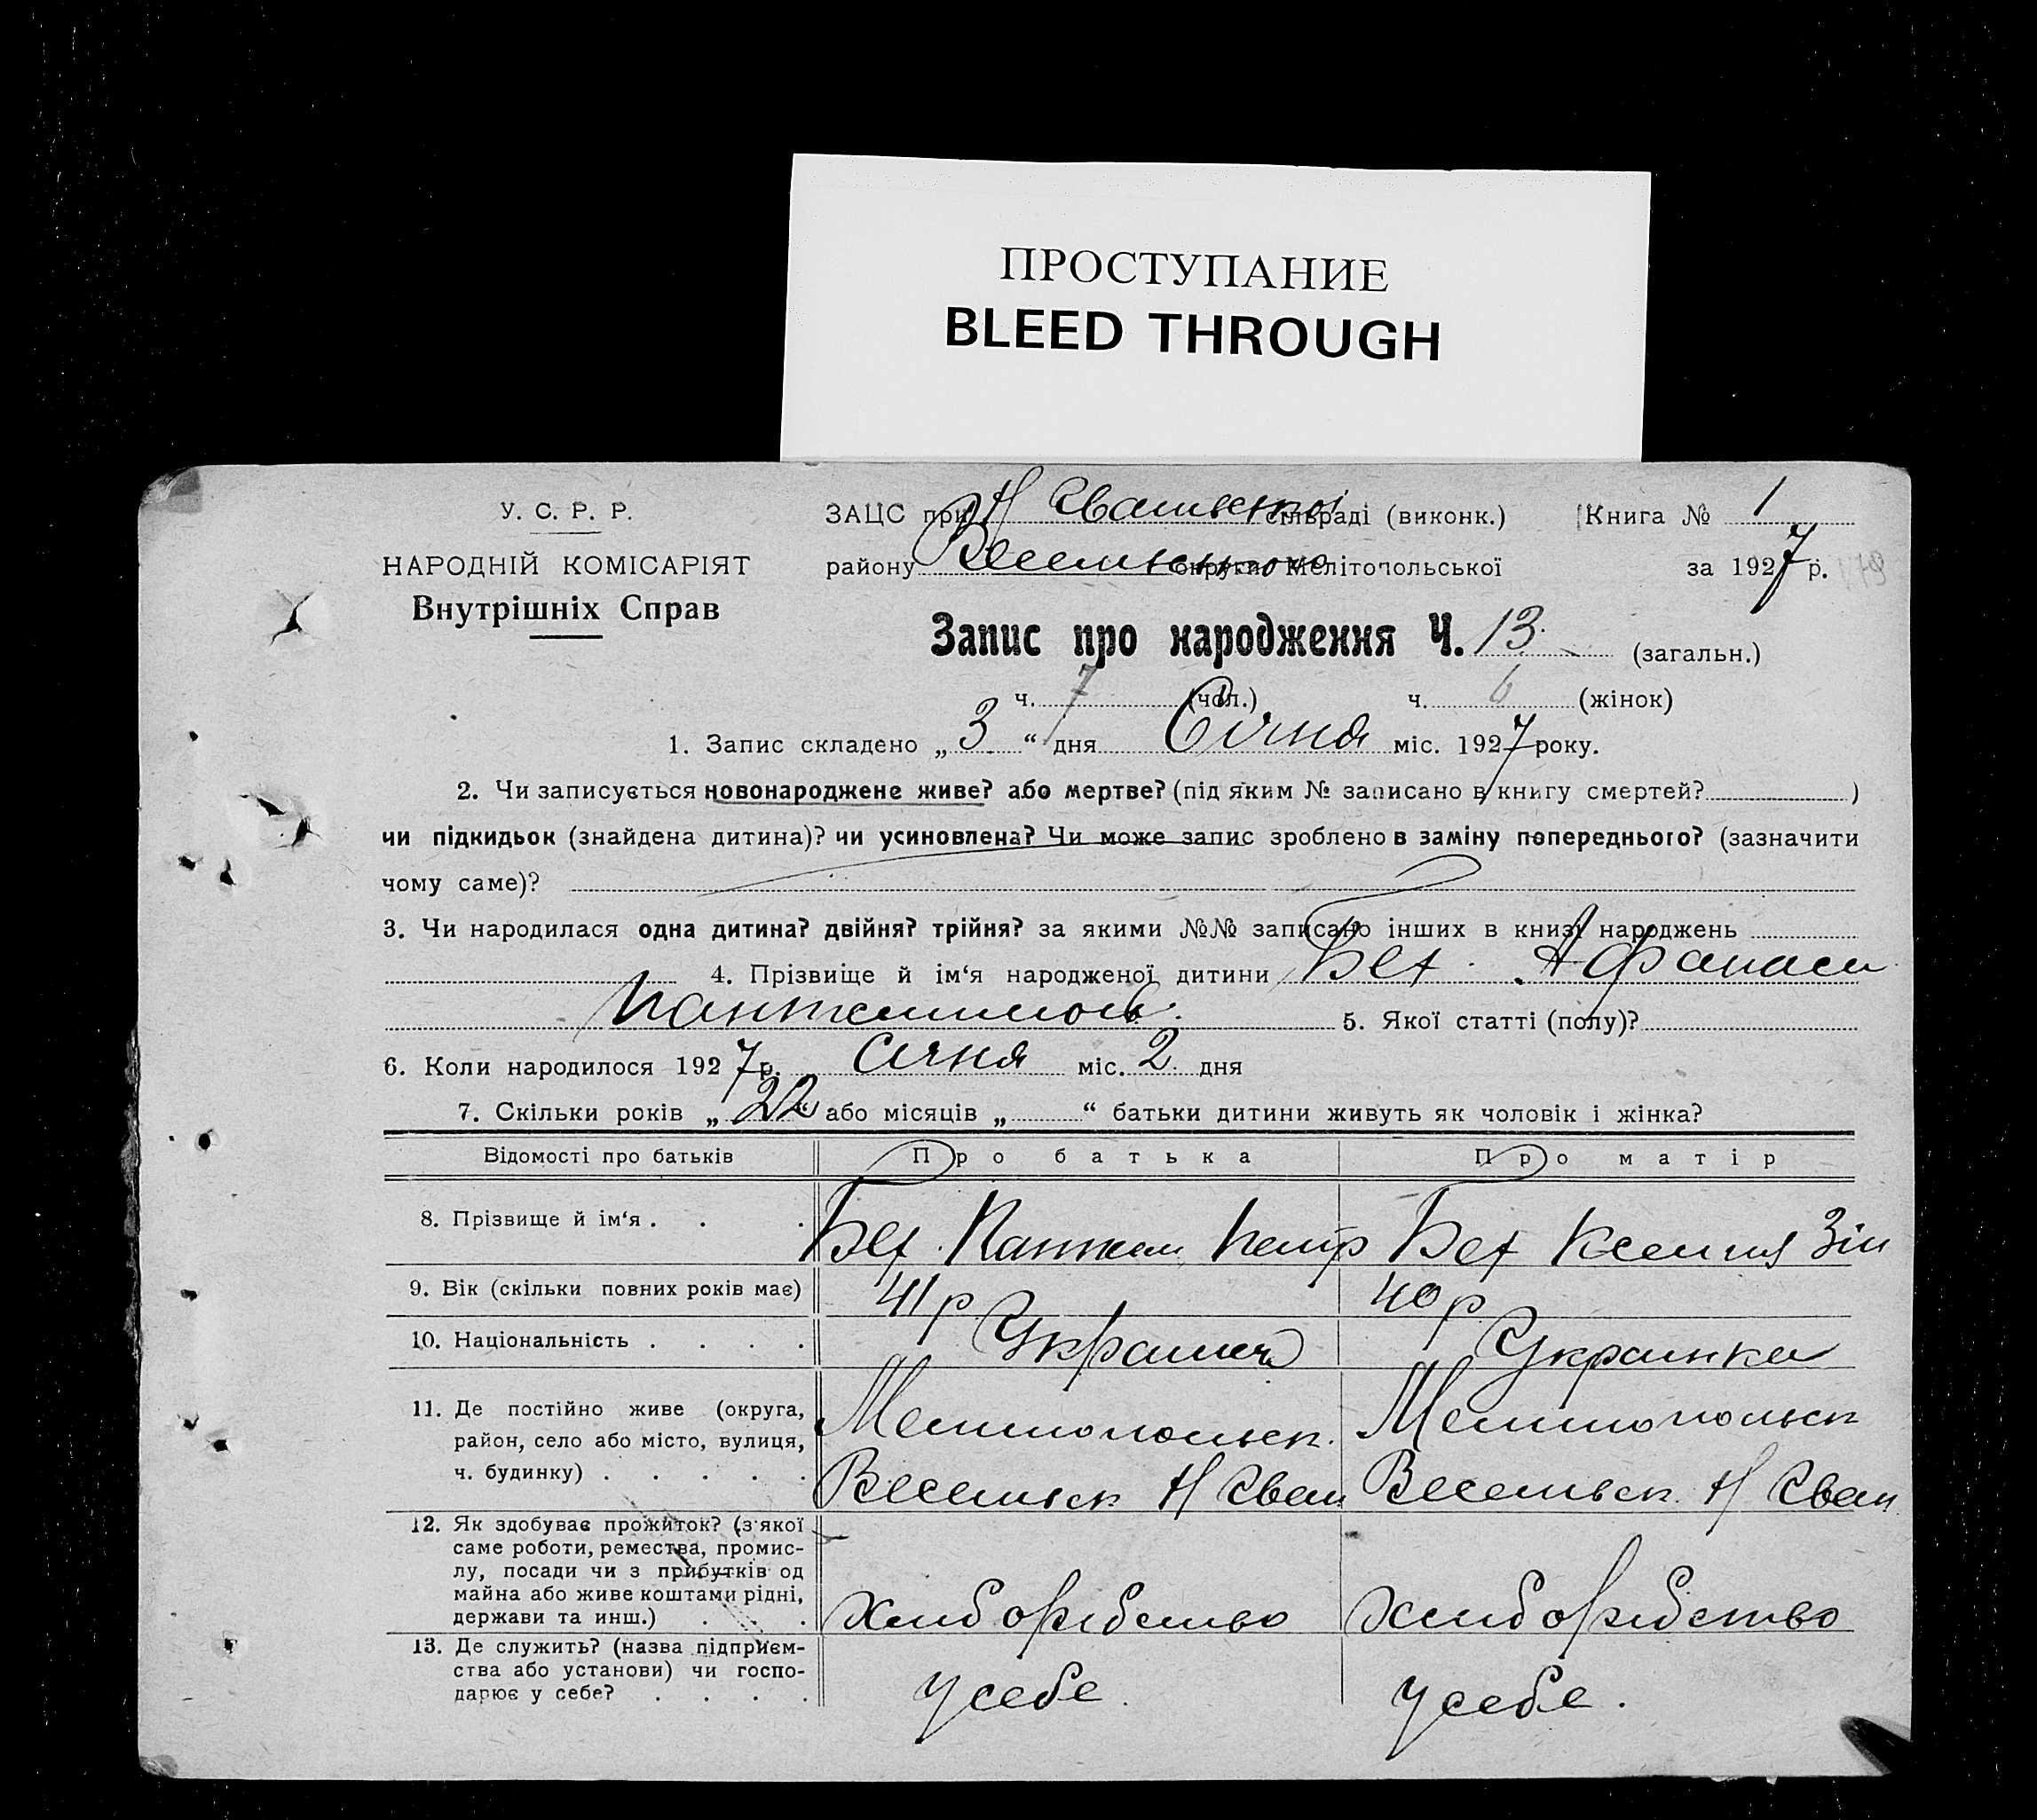 ПРОСТУПАНИЕ
BLEED THROUGH
У. С. Р. Р.
НАРОДНІЙ КОМІСАРІЯТ
Внутрішніх Справ
ЗАЦС при Н сільраді (виконк.) Книга № 1
району округи Мелітопольської за 1927 р.
Запис про народження Ч. 13 (загальн.)
ч. 7 (чол.) ч. 6 (жінок)
1. Запис складено „ 3 “ дня Січня міс. 1927 року.
2. Чи записується новонароджене живе? або мертве? (під яким № записано в книгу смертей? )
чи підкидьок (знайдена дитина)? чи усиновлена? Чи може запис зроблено в заміну попереднього? (зазначити
чому саме)?
3. Чи народилася одна дитина? двійня? трійня? за якими №№ записано інших в книзі народжень
4. Прізвище й ім‘я народженої дитини Бех Афанаси
5. Якої статті (полу)?
6. Коли народилося 1927 р. січня міс. 2 дня
7. Скільки років „ 22 “ або місяців „ “ батьки дитини живуть як чоловік і жінка?
Відомості про батьків Про батька Про матір
8. Прізвище й ім‘я . . . Бех Пантел Петр Бех Ксения Зін
9. Вік (скільки повних років має) 41 р 40 р
10. Національність . . . . Украинец Украинка
11. Де постійно живе (округа,
район, село або місто, вулиця,
ч. будинку) . . . . .
Мелитопольск. Мелитопольск
Весельск Н Сван Весельск. Н Сван
12. Як здобуває прожиток? (з якої
саме роботи, ремества, промис-
лу, посади чи з прибутків од
майна або живе коштами рідні,
держави та инш.) . . .
хлиборобство хлиборобство
13. Де служить? (назва підприєм-
ства або установи) чи госпо-
дарює у себе? . . . .
у себе. у себе.